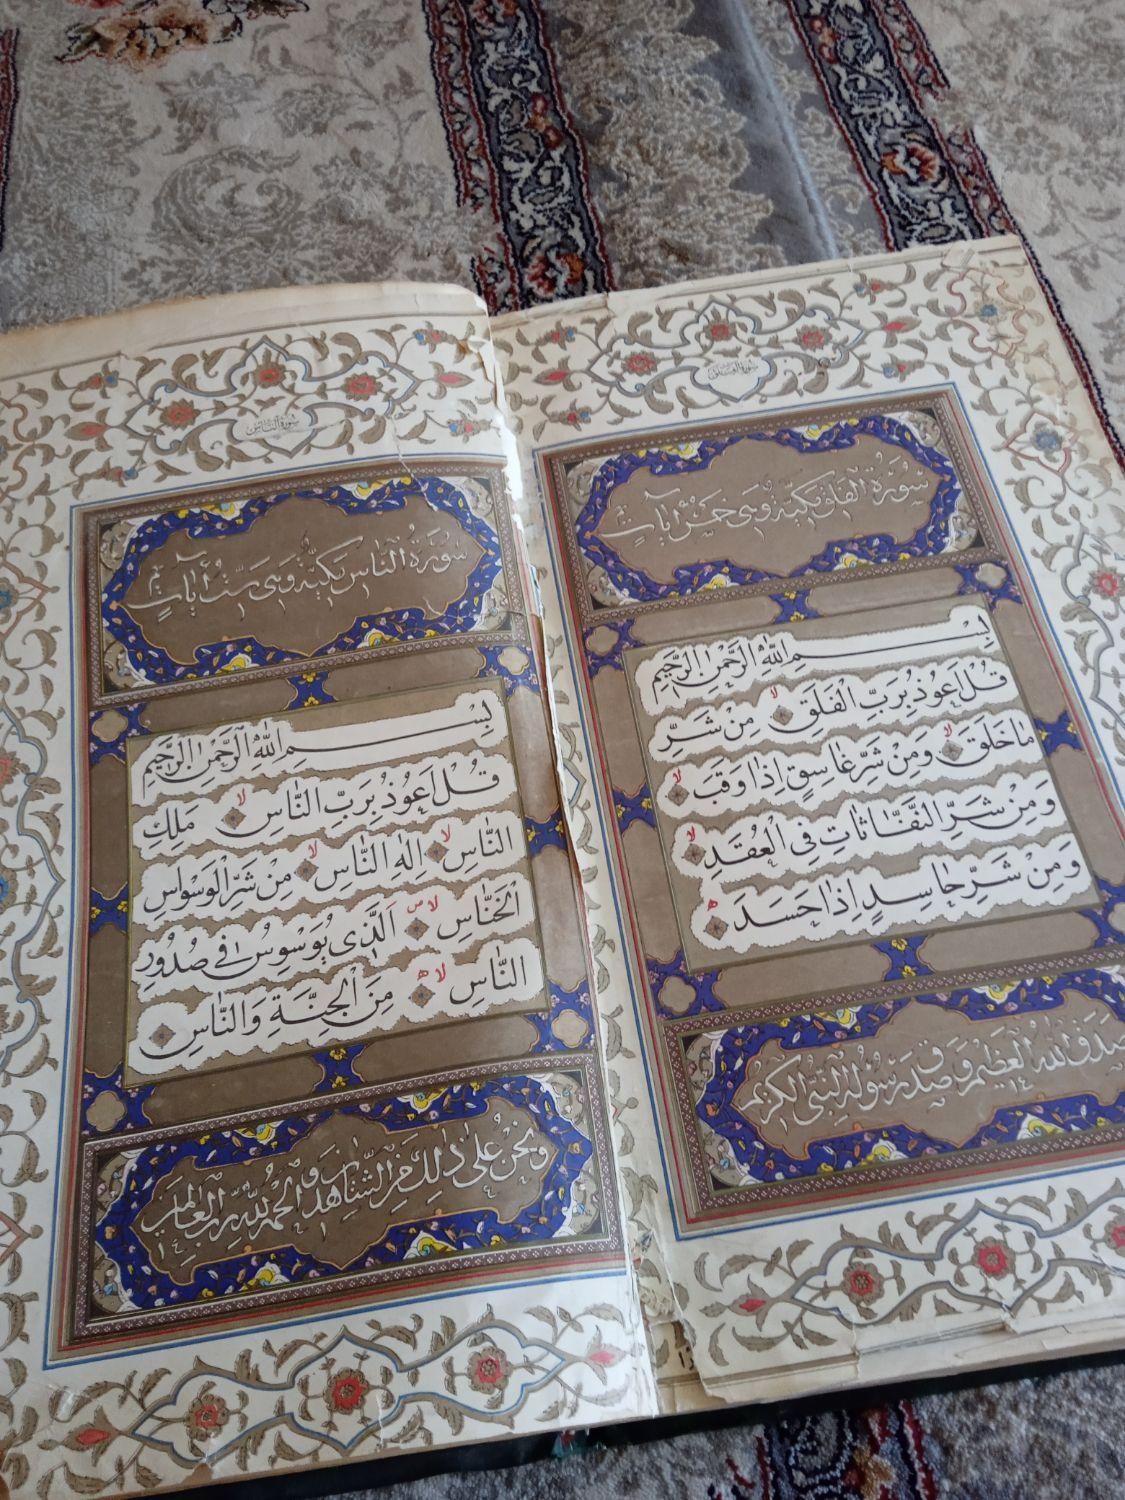 سورة الفلق
سُورَةُ الْفَلَقِ مَكِّيَّةٌ وَهِيَ خَمْسُ آيَاتٍ
بِسْمِ اللّٰهِ الرَّحْمٰنِ الرَّحِيمِ
قُلْ اَعُوذُ بِرَبِّ الْفَلَقِ لا مِنْ شَرِّ
مَا خَلَقَ لا وَمِنْ شَرِّ غَاسِقٍ اِذَا وَقَبَ لا
وَمِنْ شَرِّ النَّفَّاثَاتِ فِى الْعُقَدِ لا
وَمِنْ شَرِّ حَاسِدٍ اِذَا حَسَدَ
صدق الله العظيم وصدق رسوله النبى الكريم
سورة الناس
سُورَةُ النَّاسِ مَكِّيَّةٌ وَهِيَ سِتُّ آيَاتٍ
بِسْمِ اللّٰهِ الرَّحْمٰنِ الرَّحِيمِ
قُلْ اَعُوذُ بِرَبِّ النَّاسِ لا مَلِكِ
النَّاسِ لا اِلٰهِ النَّاسِ لا مِنْ شَرِّ الْوَسْوَاسِ
الْخَنَّاسِ لا اَلَّذِى يُوَسْوِسُ فِى صُدُورِ
النَّاسِ لا مِنَ الْجِنَّةِ وَالنَّاسِ
ونحن على ذلك من الشاهدين والحمد لله رب العالمين